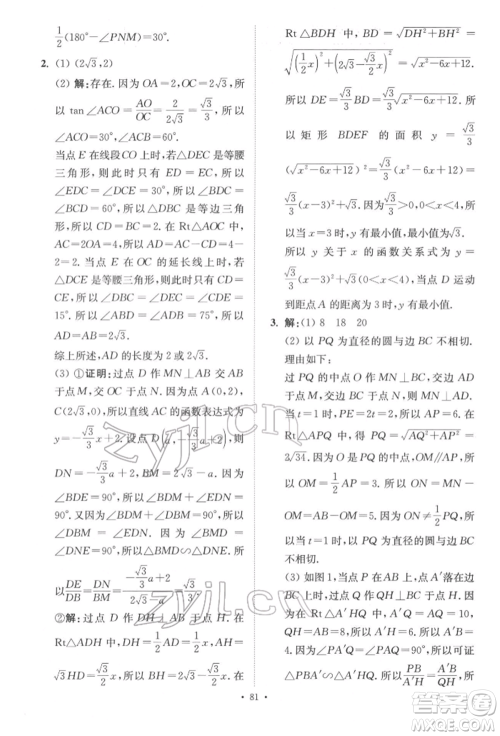 1/2(180°－∠PNM)＝30°.
2. (1) (2√3,2)
(2) 解:存在.因为 OA＝2,OC＝2√3,所
以 tan∠ACO＝AO/OC＝2/(2√3)＝√3/3,所以
∠ACO＝30°,∠ACB＝60°.
当点 E 在线段 OC 上时,若△DEC 是等腰
三角形,则只有 ED＝EC,所以
∠DCE＝∠EDC＝30°,所以∠DBC＝
∠BCD＝60°,所以△DBC 是等边三角
形,所以 DC＝BC＝2.在 Rt△AOC 中,
AC＝2AO＝4,所以 AD＝AC－CD＝2.
当点 E 在 OC 的延长线上时,若
△DCE 是等腰三角形,则只有 CD＝
CE,所以∠DBC＝∠DEC＝
∠CDE＝15°,所以∠ABD＝
∠ADB＝75°,所以 AD＝AB＝2√3.
综上所述,AD 的长度为 2 或 2√3.
(3) ①证明:过点 D 作 MN⊥AB,交 AB
于点 M,交 OC 于点 N.因为 A(0,2),
C(2√3,0),所以直线 AC 的函数表达式为
y＝－√3/3x＋2.设点 D(a,－√3/3a＋2),则
DN＝－√3/3a＋2,BM＝2√3－a.因为
∠BDE＝90°,所以∠BDM＋∠EDN＝
90°.又因为∠DBM＋∠BDM＝90°,
所以∠DBM＝∠EDN.因为∠BMD＝
∠DNE＝90°,所以△BMD∽△DNE,所
以DE/DB＝DN/BM＝(－√3/3a＋2)/(2√3－a)＝√3/3.
②解:过点 D 作 DH⊥AB 于点 H.在
Rt△ADH 中,DH＝1/2AD＝1/2x,AH＝
√3HD＝√3/2x,所以 BH＝2√3－√3/2x.在
Rt△BDH 中,BD＝√(DH²＋BH²)＝
√((1/2x)²＋(2√3－√3/2x)²)＝√(x²－6x＋12).
所以 DE＝√3/3BD＝√3/3√(x²－6x＋12).所
以矩形 BDEF 的面积 y＝√3/3
(√(x²－6x＋12))²＝√3/3(x²－6x＋12)＝
√3/3(x－3)²＋√3.因为√3/3＞0,0＜x＜4,
所以当 x＝3 时,y 有最小值√3.
所以 y 关于 x 的函数关系式为 y＝
√3/3(x－3)²＋√3(0＜x＜4),当点 D 运动
到距离点 A 3 个单位长度时,y 有最小值.
3. 解:(1) 8 18 20
(2) 以 PQ 为直径的圆与边 BC 不相切.
理由如下:
过 PQ 的中点 O 作 MN⊥BC 交 BC
于点 N,交 AD 于点 M,则 MN＝AB＝8.
当 t＝1 时,PB＝2t＝2,所以 AP＝6.在
Rt△APQ 中,PQ＝√(AQ²＋AP²)＝
2√34.因为点 O 是 PQ 的中点,OM∥AP,
所以 OM＝1/2AP＝3,所以 ON＝MN－
OM＝8－3＝5.因为 ON≠1/2PQ,所以
当 t＝1 时,以 PQ 为直径的圆与边 BC
不相切.
(3) 如图 1,过点 A′作 A′H⊥AD 于点
H.因为在 Rt△A′HQ 中,A′Q＝AQ＝10,
QH＝AH＝A′B＝6,所以 A′H＝8＝
AB,所以 A′B＝4.由题意可证
△PBA′∽△A′HQ,所以PB/A′H＝A′B/QH,所以
· 81 ·
zyjl.cn
zyjl.cn
答案圈